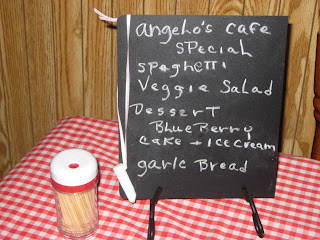 angelo's cafe
special
spaghetti
veggie salad
Dessert
BlueBerry
cake + ice cream
garlic Bread